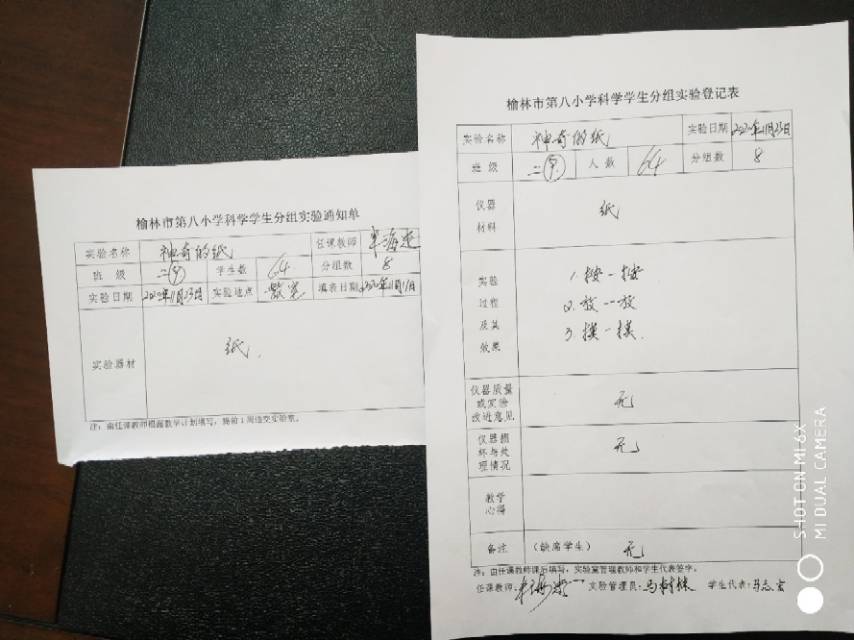 榆林市第八小学科学学生分组实验通知单
实验名称 神奇的纸 任课教师
班 级 二 学生数 64 分组数 8
实验日期 2020年11月23日 实验地点 教室 填表日期 2020年11月11日
实验器材 纸.
注：由任课教师根据教学计划填写，提前1周送交实验室。
榆林市第八小学科学学生分组实验登记表
实验名称 神奇的纸 实验日期 2020年11月23日
班 级 二 人 数 64 分组数 8
仪器
材料
纸
实验
过程
及其
效果
1. 按一按
2. 放一放
3. 摸一摸.
仪器质量
或实验
改进意见
无
仪器损
坏与处
理情况
无
教学
心得
备注 (缺席学生) 无
注：由任课教师课后填写，实验室管理教师和学生代表签字。
任课教师: 实验管理员: 马树林 学生代表:
SHOT ON MI 6X
MI DUAL CAMERA